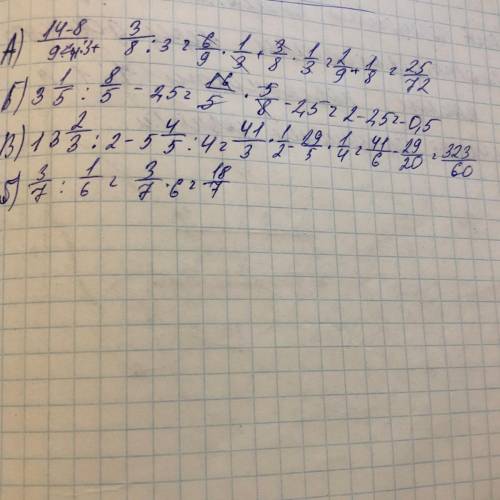 А) 14-8/9 : 3 + 3/8 : 3 = 6/9 · 1/3 + 3/8 · 1/3 = 2/9 + 1/8 = 25/72
Б) 3 1/5 : 8/5 - 2,5 = 16/5 · 5/8 - 2,5 = 2 - 2,5 = -0,5
В) 13 2/3 : 2 - 5 4/5 : 4 = 41/3 · 1/2 - 29/5 · 1/4 = 41/6 - 29/20 = 323/60
Б) 3/7 : 1/6 = 3/7 · 6 = 18/7